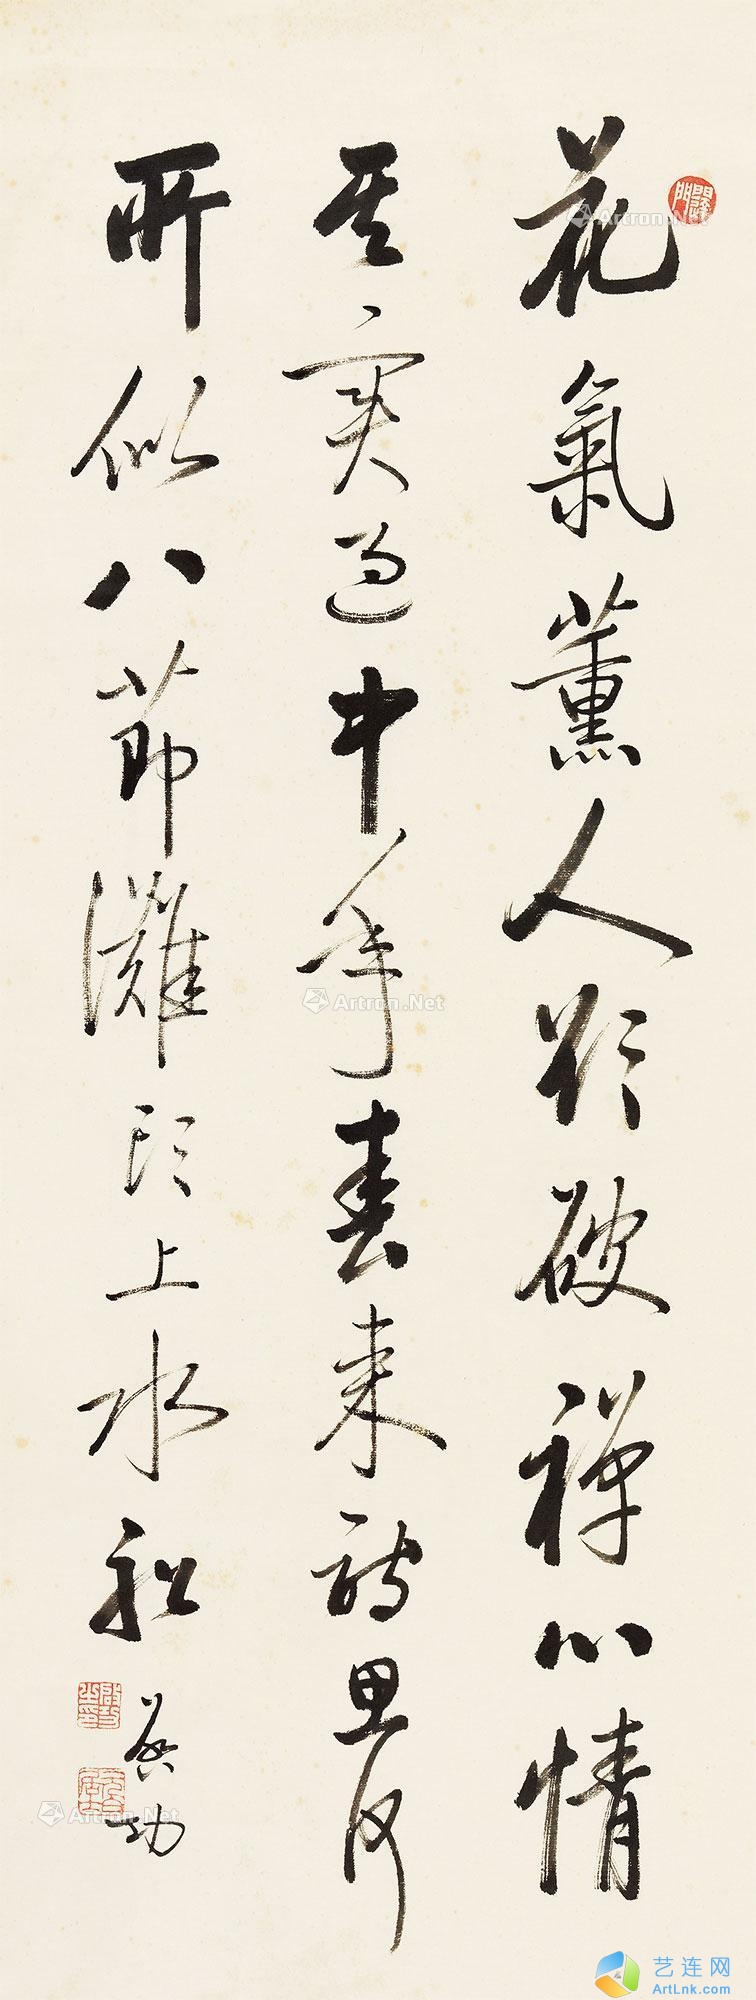 花氣薰人欲破禪心情
其實過中年春來詩思何
所似八節灘頭上水船
啟功
Artron.Net
Artron.Net
Artron.Net
艺连网
ArtLnk.com